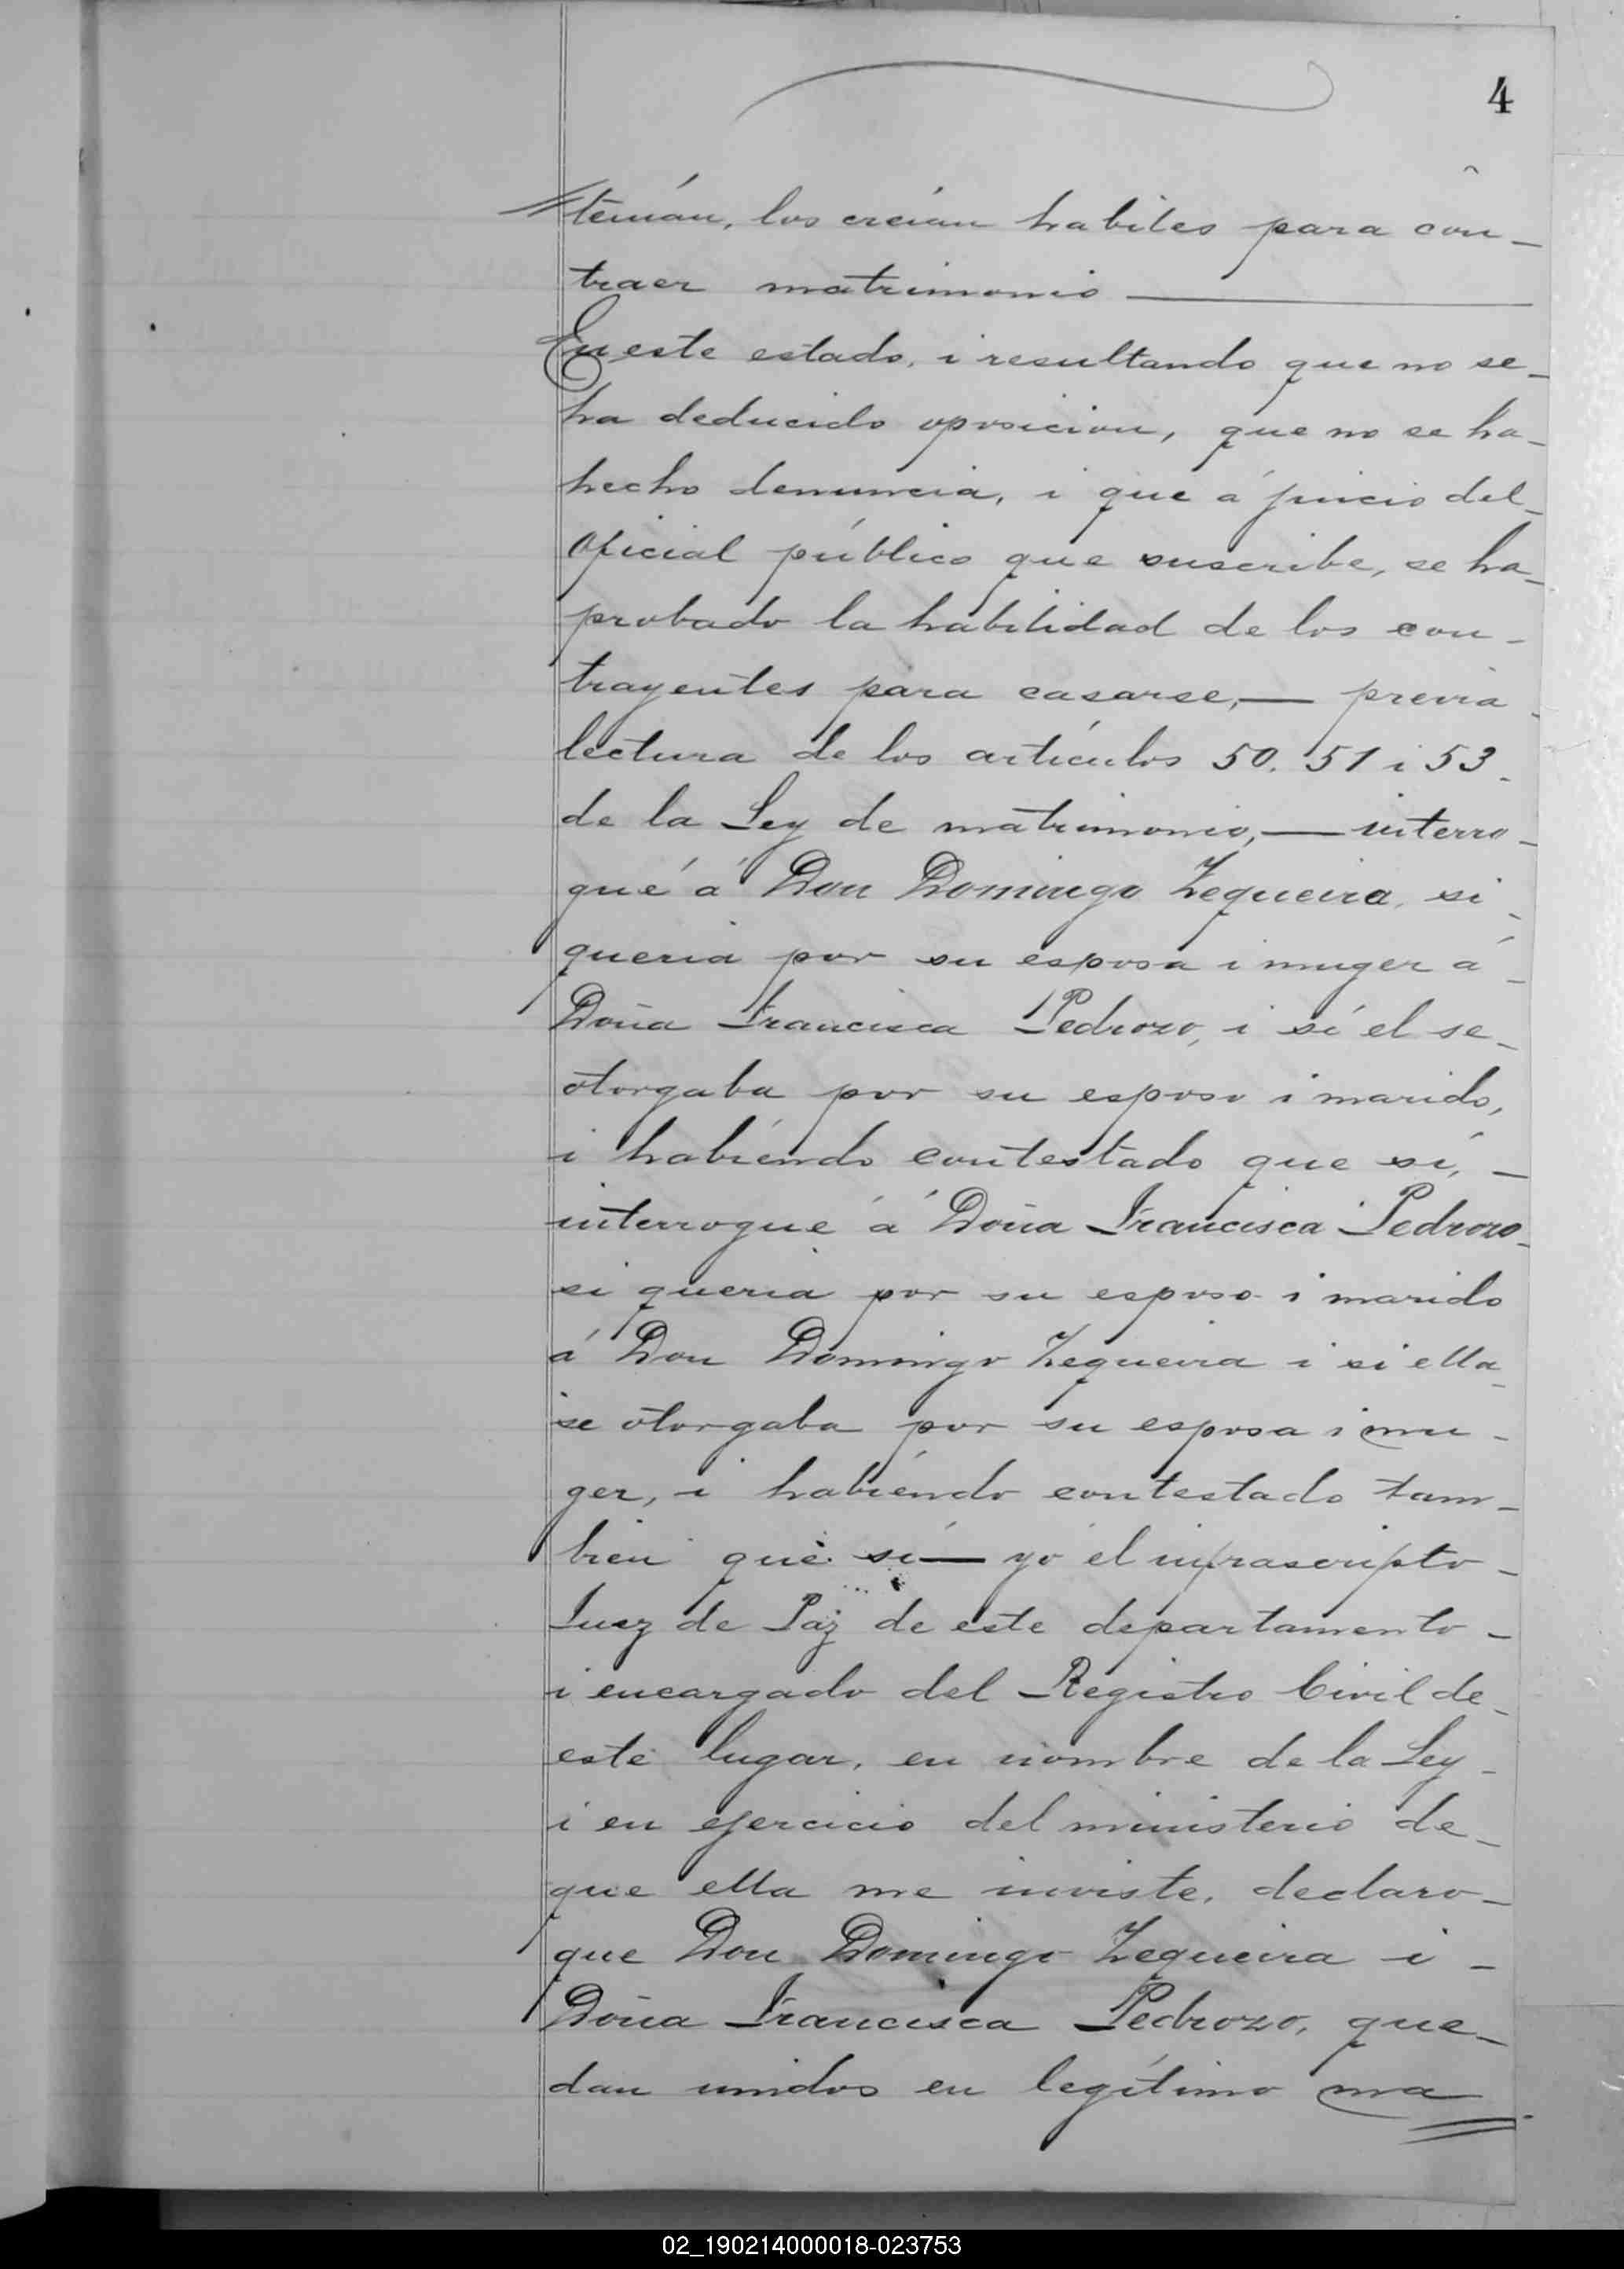 4
tenían, los creían habiles para con-
traer matrimonio
En este estado, i resultando que no se-
ha deducido oposicion, que no se ha-
hecho denuncia, i que á juicio del-
oficial público que suscribe, se ha-
probado la habilidad de los con-
trayentes para casarse,— previa
lectura de los artículos 50. 51 i 53.
de la Ley de matrimonio,— interro-
gué á Don Domingo Zequeira, si
queria por su esposa i muger á
Doña Francisca Pedrozo, i sí el se-
otorgaba por su esposo i marido,
i habiendo contestado que sí, —
interrogué á Doña Francisca Pedrozo
si queria por su esposo i marido
á Don Domingo Zequeira i si ella
se otorgaba por su esposa i mu-
ger, i habiendo contestado tam-
bien que sí— yo el infrascripto-
Juez de Paz de este departamento-
i encargado del Registro Civil de-
este lugar, en nombre de la Ley-
i en ejercicio del ministerio de-
que ella me inviste, declaro-
que Don Domingo Zequeira i -
Doña Francisca Pedrozo, que-
dan unidos en legítimo ma
02_190214000018-023753